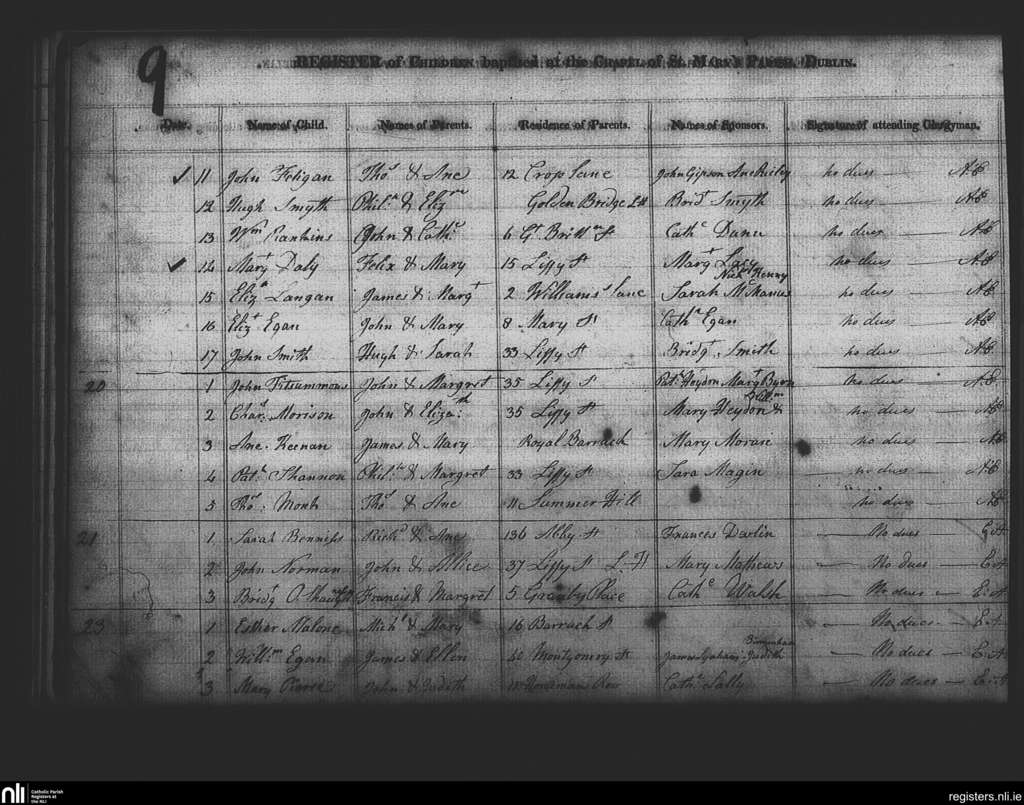 9
REGISTER of CHILDREN baptised at the CHAPEL of St. MARY'S PARISH, DUBLIN.
Date. Name of Child. Names of Parents. Residence of Parents. Names of Sponsors. Signature of attending Clergyman.
✓ 11 John Feligan Thos & Ane 12 Cross Lane John Gipson Ane Reiley no dues —
12 Hugh Smyth Phil.n & Eliz.m Golden Bridge Brid.t Smyth no dues —
13 Wm Rankins John & Cath.e 6 Gt. Britt.n St Cath.e Dunn no dues —
✓ 14 Mary.t Daly Felix & Mary 15 Liffy St Marg.t Lacy no dues —
Nich.s Kenny
15 Eliz.a Langan James & Marg.t 2 Williams Lane Sarah McManus no dues —
16 Eliz.a Egan John & Mary 8 Mary St Cath.e Egan no dues —
17 John Smith Hugh & Sarah 33 Liffy St Bridg.t Smith no dues —
20 1 John Fitsummons John & Margret 35 Liffy St Pat.k Heydon Mary.t Byrn no dues —
2 Char.s Morison John & Eliza.th 35 Liffy St Mary Heydon & Will.m no dues —
3 Ane Keenan James & Mary Royal Barrack Mary no dues —
4 Pat.k Shannon & Margret 33 Liffy St Sara Magin — no dues —
5 Tho.s Monk Tho.s & Ane 11 Summer Hill — no dues —
21 1 Sarah Rich.d & Ane 136 Abby St Frances Darlin — No dues —
2 John Norman John & Allice 37 Liffy St Mary Mathews — No dues —
3 Bridg.t O Shaughn Francis & Margret 5 Granby Place Cath.e Walsh — No dues —
23 1 Esther Malone Mich.l & Mary 16 Barrack St — No dues —
2 Will.m Egan James & Ellen 40 Montgomry St James Judith — No dues —
3 Mary John & Judith Row Cath.e Lally — No dues —
nli Catholic Parish
Registers at
the NLI
registers.nli.ie